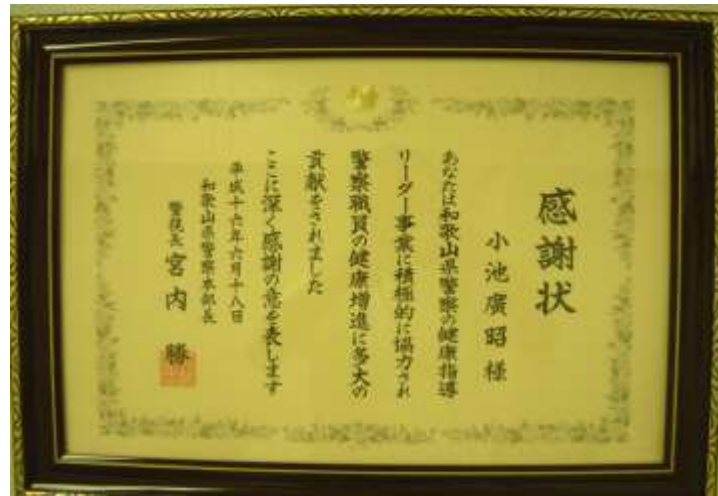 感謝状
小池廣昭様
あなたは和歌山県警察の健康指導
リーダー事業に積極的に協力され
警察職員の健康増進に多大の
貢献をされました
ここに深く感謝の意を表します
平成十六年六月十八日
和歌山県警察本部長
警視長 宮内勝